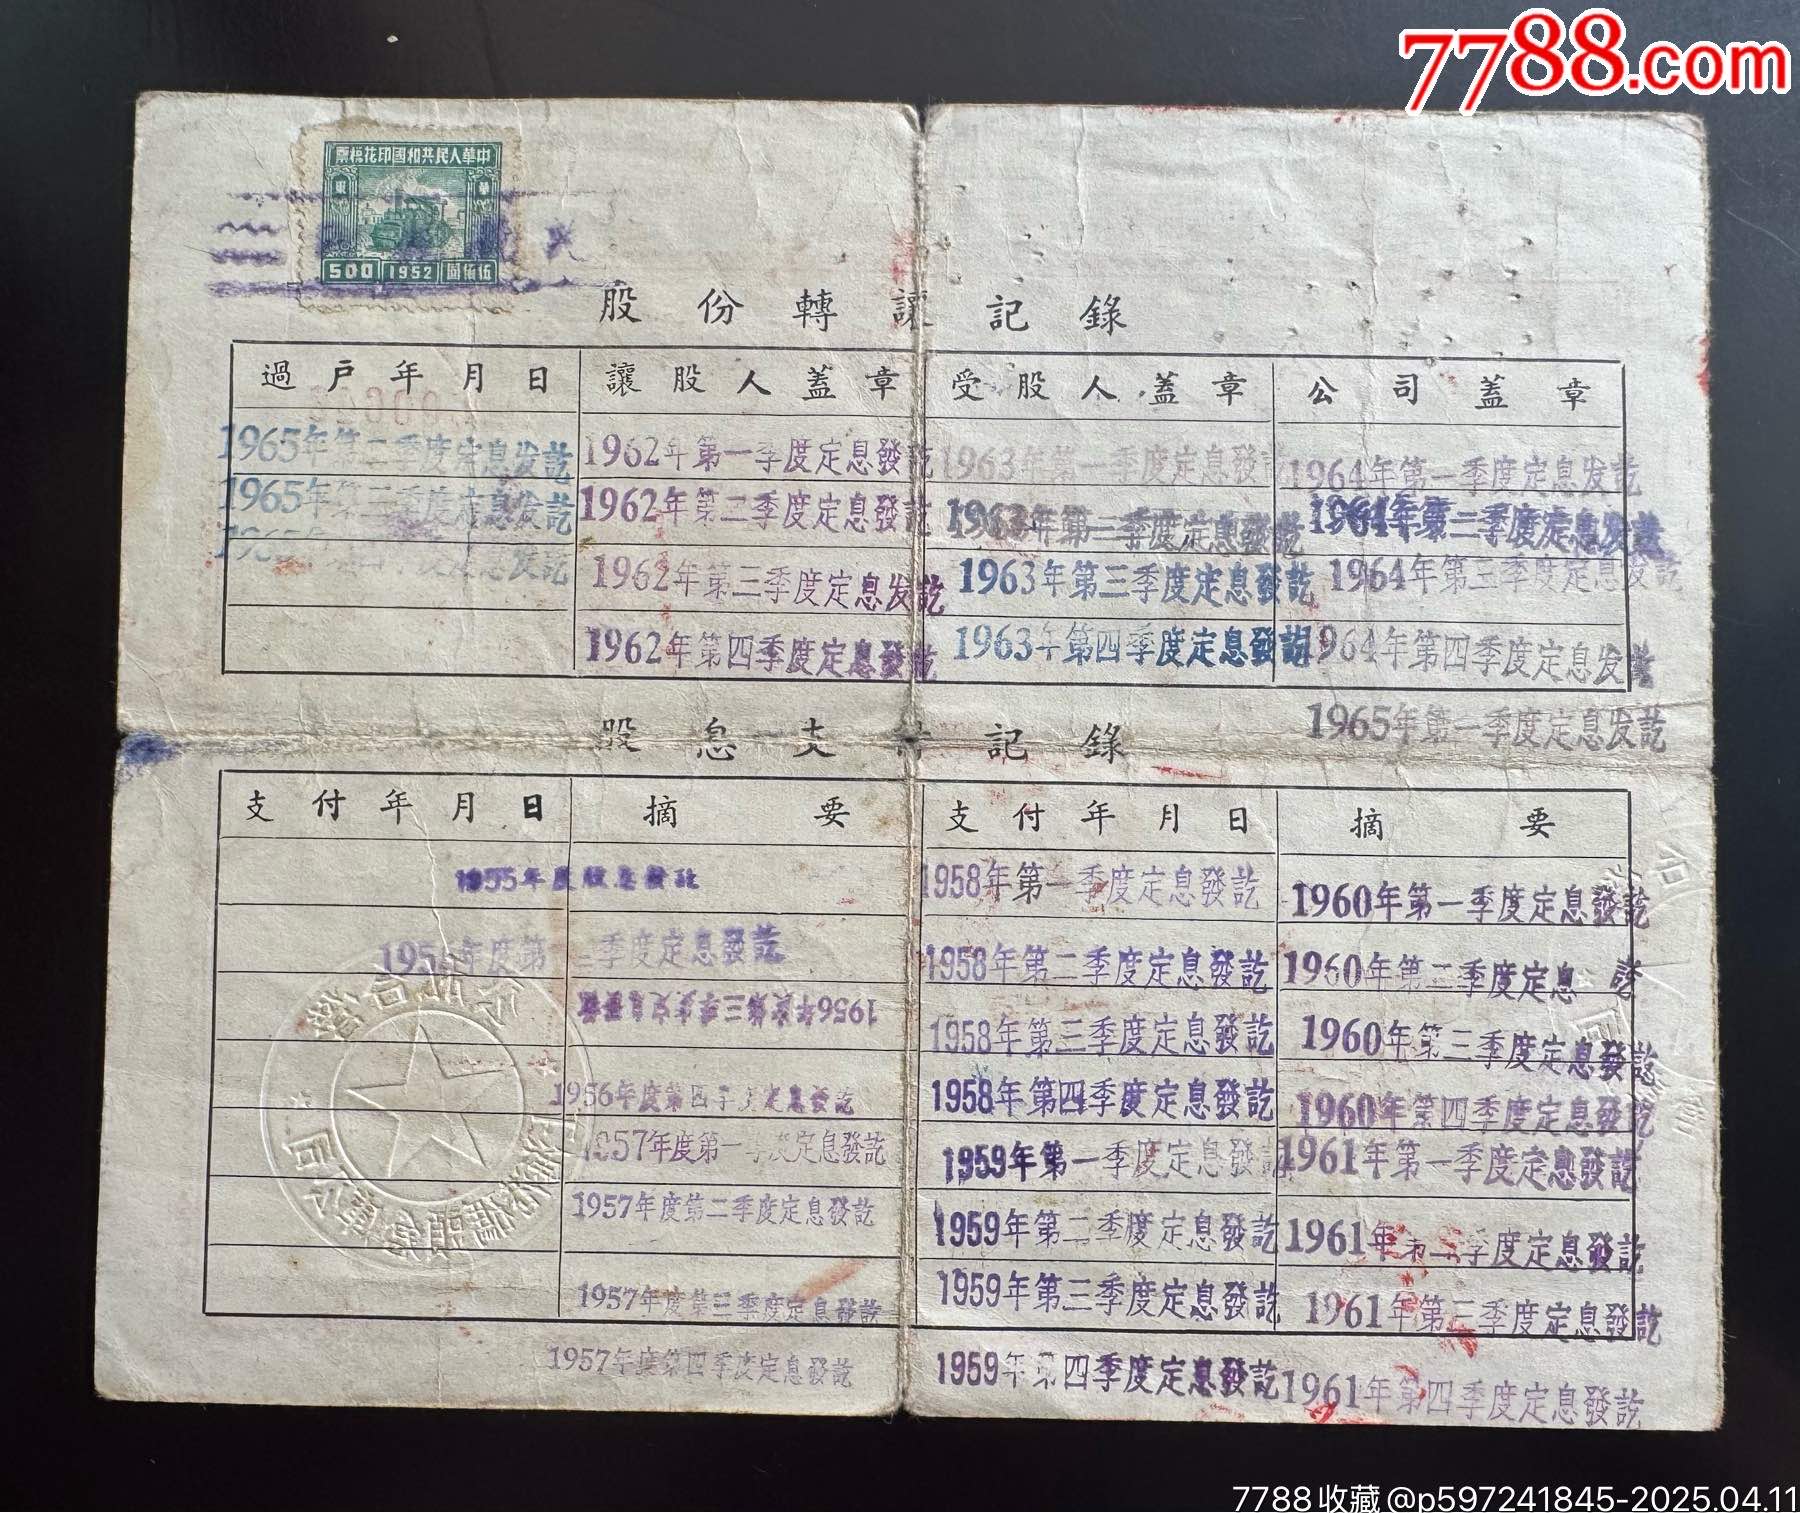 7788.com
中華人民共和國印花稅票
華 東
500 1952 伍佰圓
股份轉讓記錄
過戶年月日 讓股人蓋章 受股人蓋章 公司蓋章
1965年第二季度定息发訖 1962年第一季度定息發訖 1963年第一季度定息發訖 1964年第一季度定息发訖
1965年第三季度定息发訖 1962年第二季度定息發訖 1963年第二季度定息發訖 1964年第二季度定息发訖
1965年第四季度定息发訖 1962年第三季度定息发訖 1963年第三季度定息發訖 1964年第三季度定息发訖
1962年第四季度定息發訖 1963年第四季度定息發訖 1964年第四季度定息发訖
1965年第一季度定息发訖
股息支付記錄
支付年月日 摘要 支付年月日 摘要
1955年度股息發訖 1958年第一季度定息發訖 1960年第一季度定息發訖
季度定息發訖 1958年第二季度定息發訖 1960年第二季度定息 訖
1956年度第三季度定息發訖 1958年第三季度定息發訖 1960年第三季度定息發訖
1956年度第四季度定息發訖 1958年第四季度定息發訖 1960年第四季度定息發訖
1957年度第一季度定息發訖 1959年第一季度定息發訖 1961年第一季度定息發訖
1957年度第二季度定息發訖 1959年第二季度定息發訖 1961年第二季度定息發訖
1957年度第三季度定息發訖 1959年第三季度定息發訖 1961年第三季度定息發訖
1957年度第四季度定息發訖 1959年第四季度定息發訖 1961年第四季度定息發訖
7788收藏@p597241845-2025.04.11